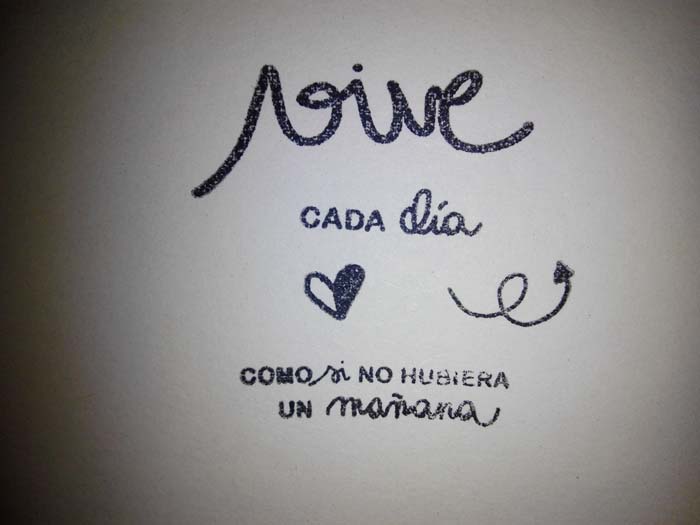 vive
CADA día
COMO si NO HUBIERA
UN mañana